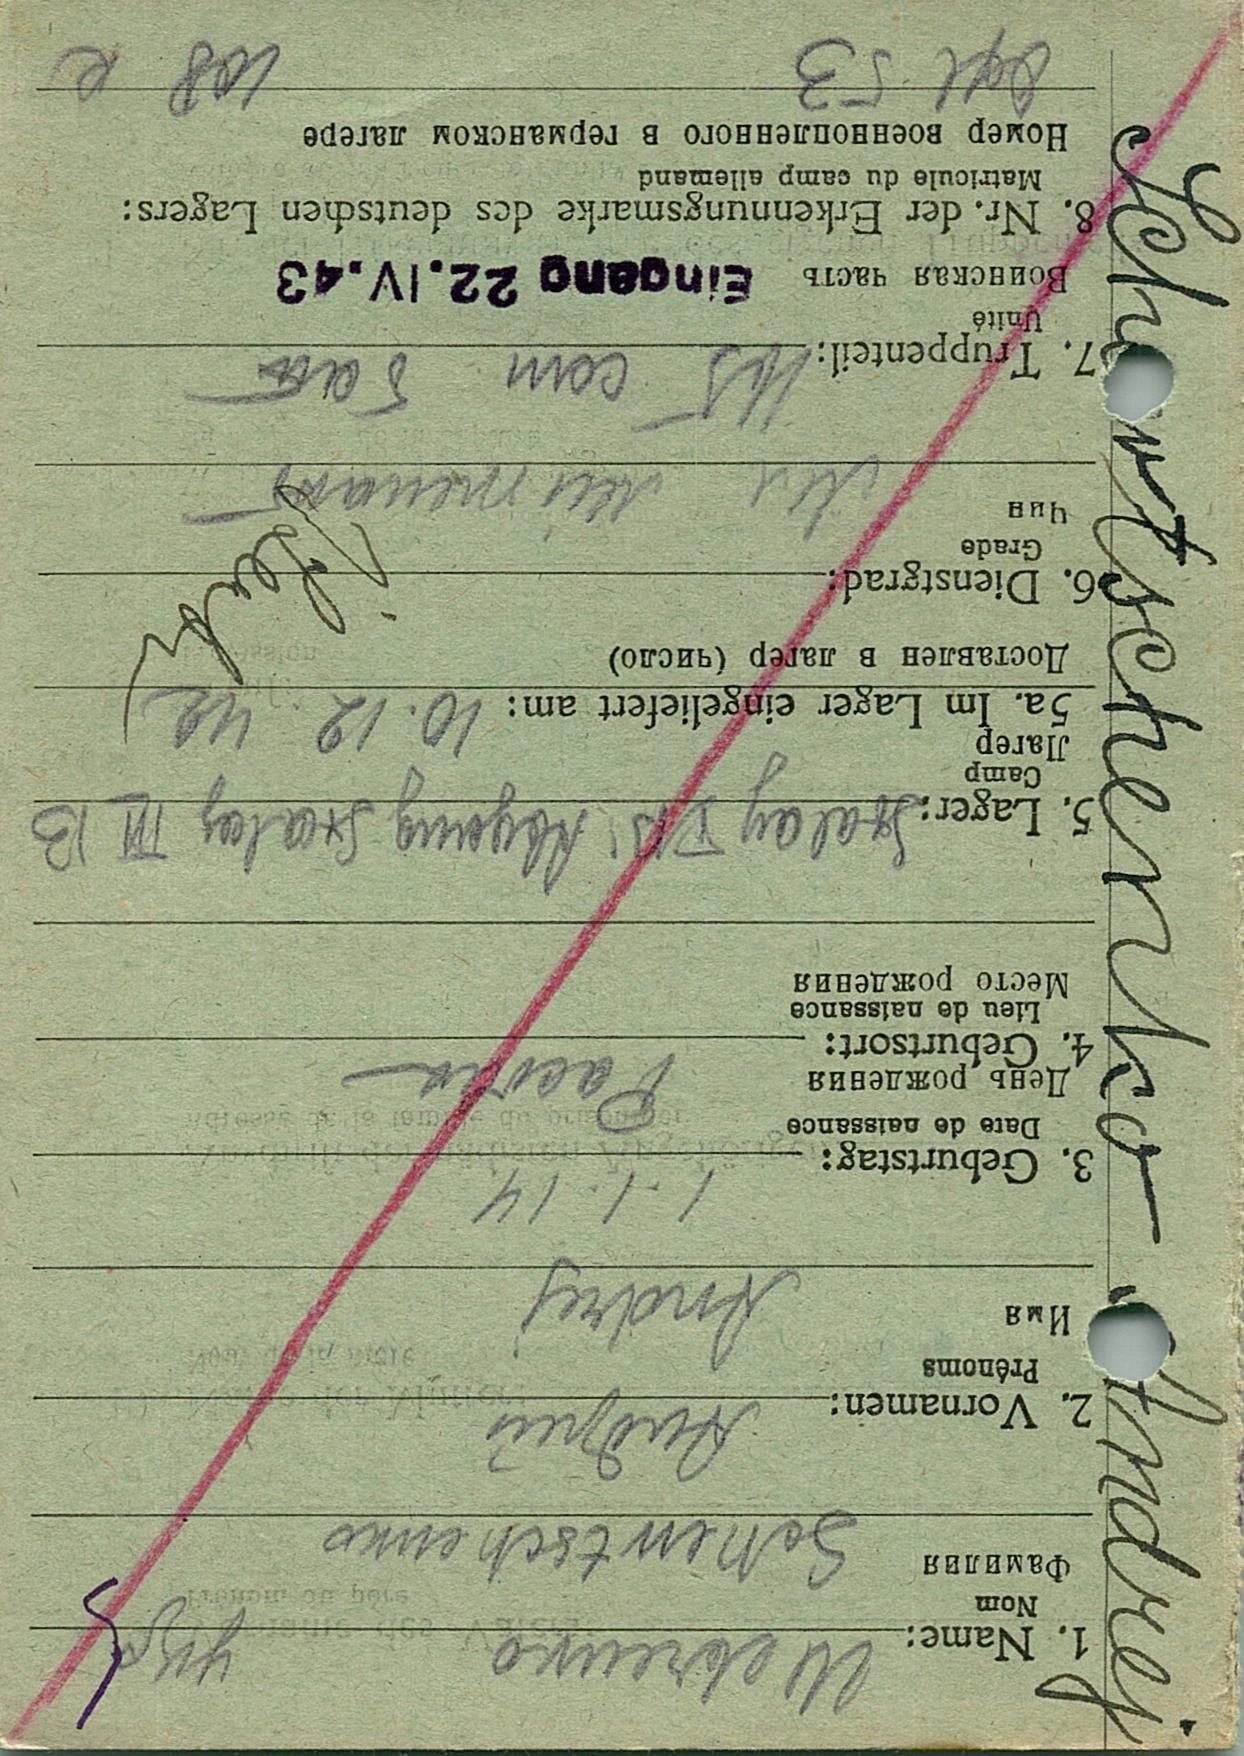 Schewtschenko Andrej
1. Name: Шевченко укр
Nom
Фамилия Schewtschenko
2. Vornamen: Андрий
Prénoms
Имя Andrej
3. Geburtstag: 1.1.14
Date de naissance
День рождения
4. Geburtsort:
Lieu de naissance
Место рождения
5. Lager: Stalag Abgang Stalag III B
Camp
Лагер
5a. Im Lager eingeliefert am: 10.12.42
Доставлен в лагер (число)
6. Dienstgrad:
Grade
Чин
7. Truppenteil:
Unité
Воинская часть Eingang 22.IV.43
8. Nr. der Erkennungsmarke des deutschen Lagers:
Matricule du camp allemand
Номер военнопленного в германском лагере
53 108